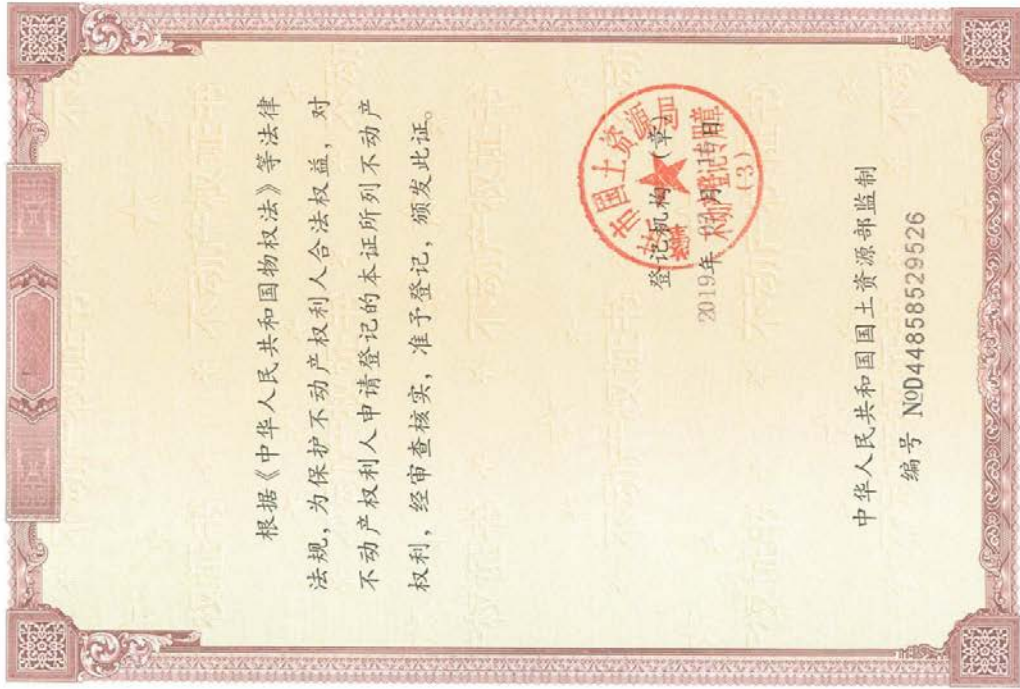 根据《中华人民共和国物权法》等法律
法规，为保护不动产权利人合法权益，对
不动产权利人申请登记的本证所列不动产
权利，经审查核实，准予登记，颁发此证。
市国土资源局
不动产登记专用章
(3)
登记机构（章）
2019年 月 日
中华人民共和国国土资源部监制
编号 NOD44858529526
不动产权证书